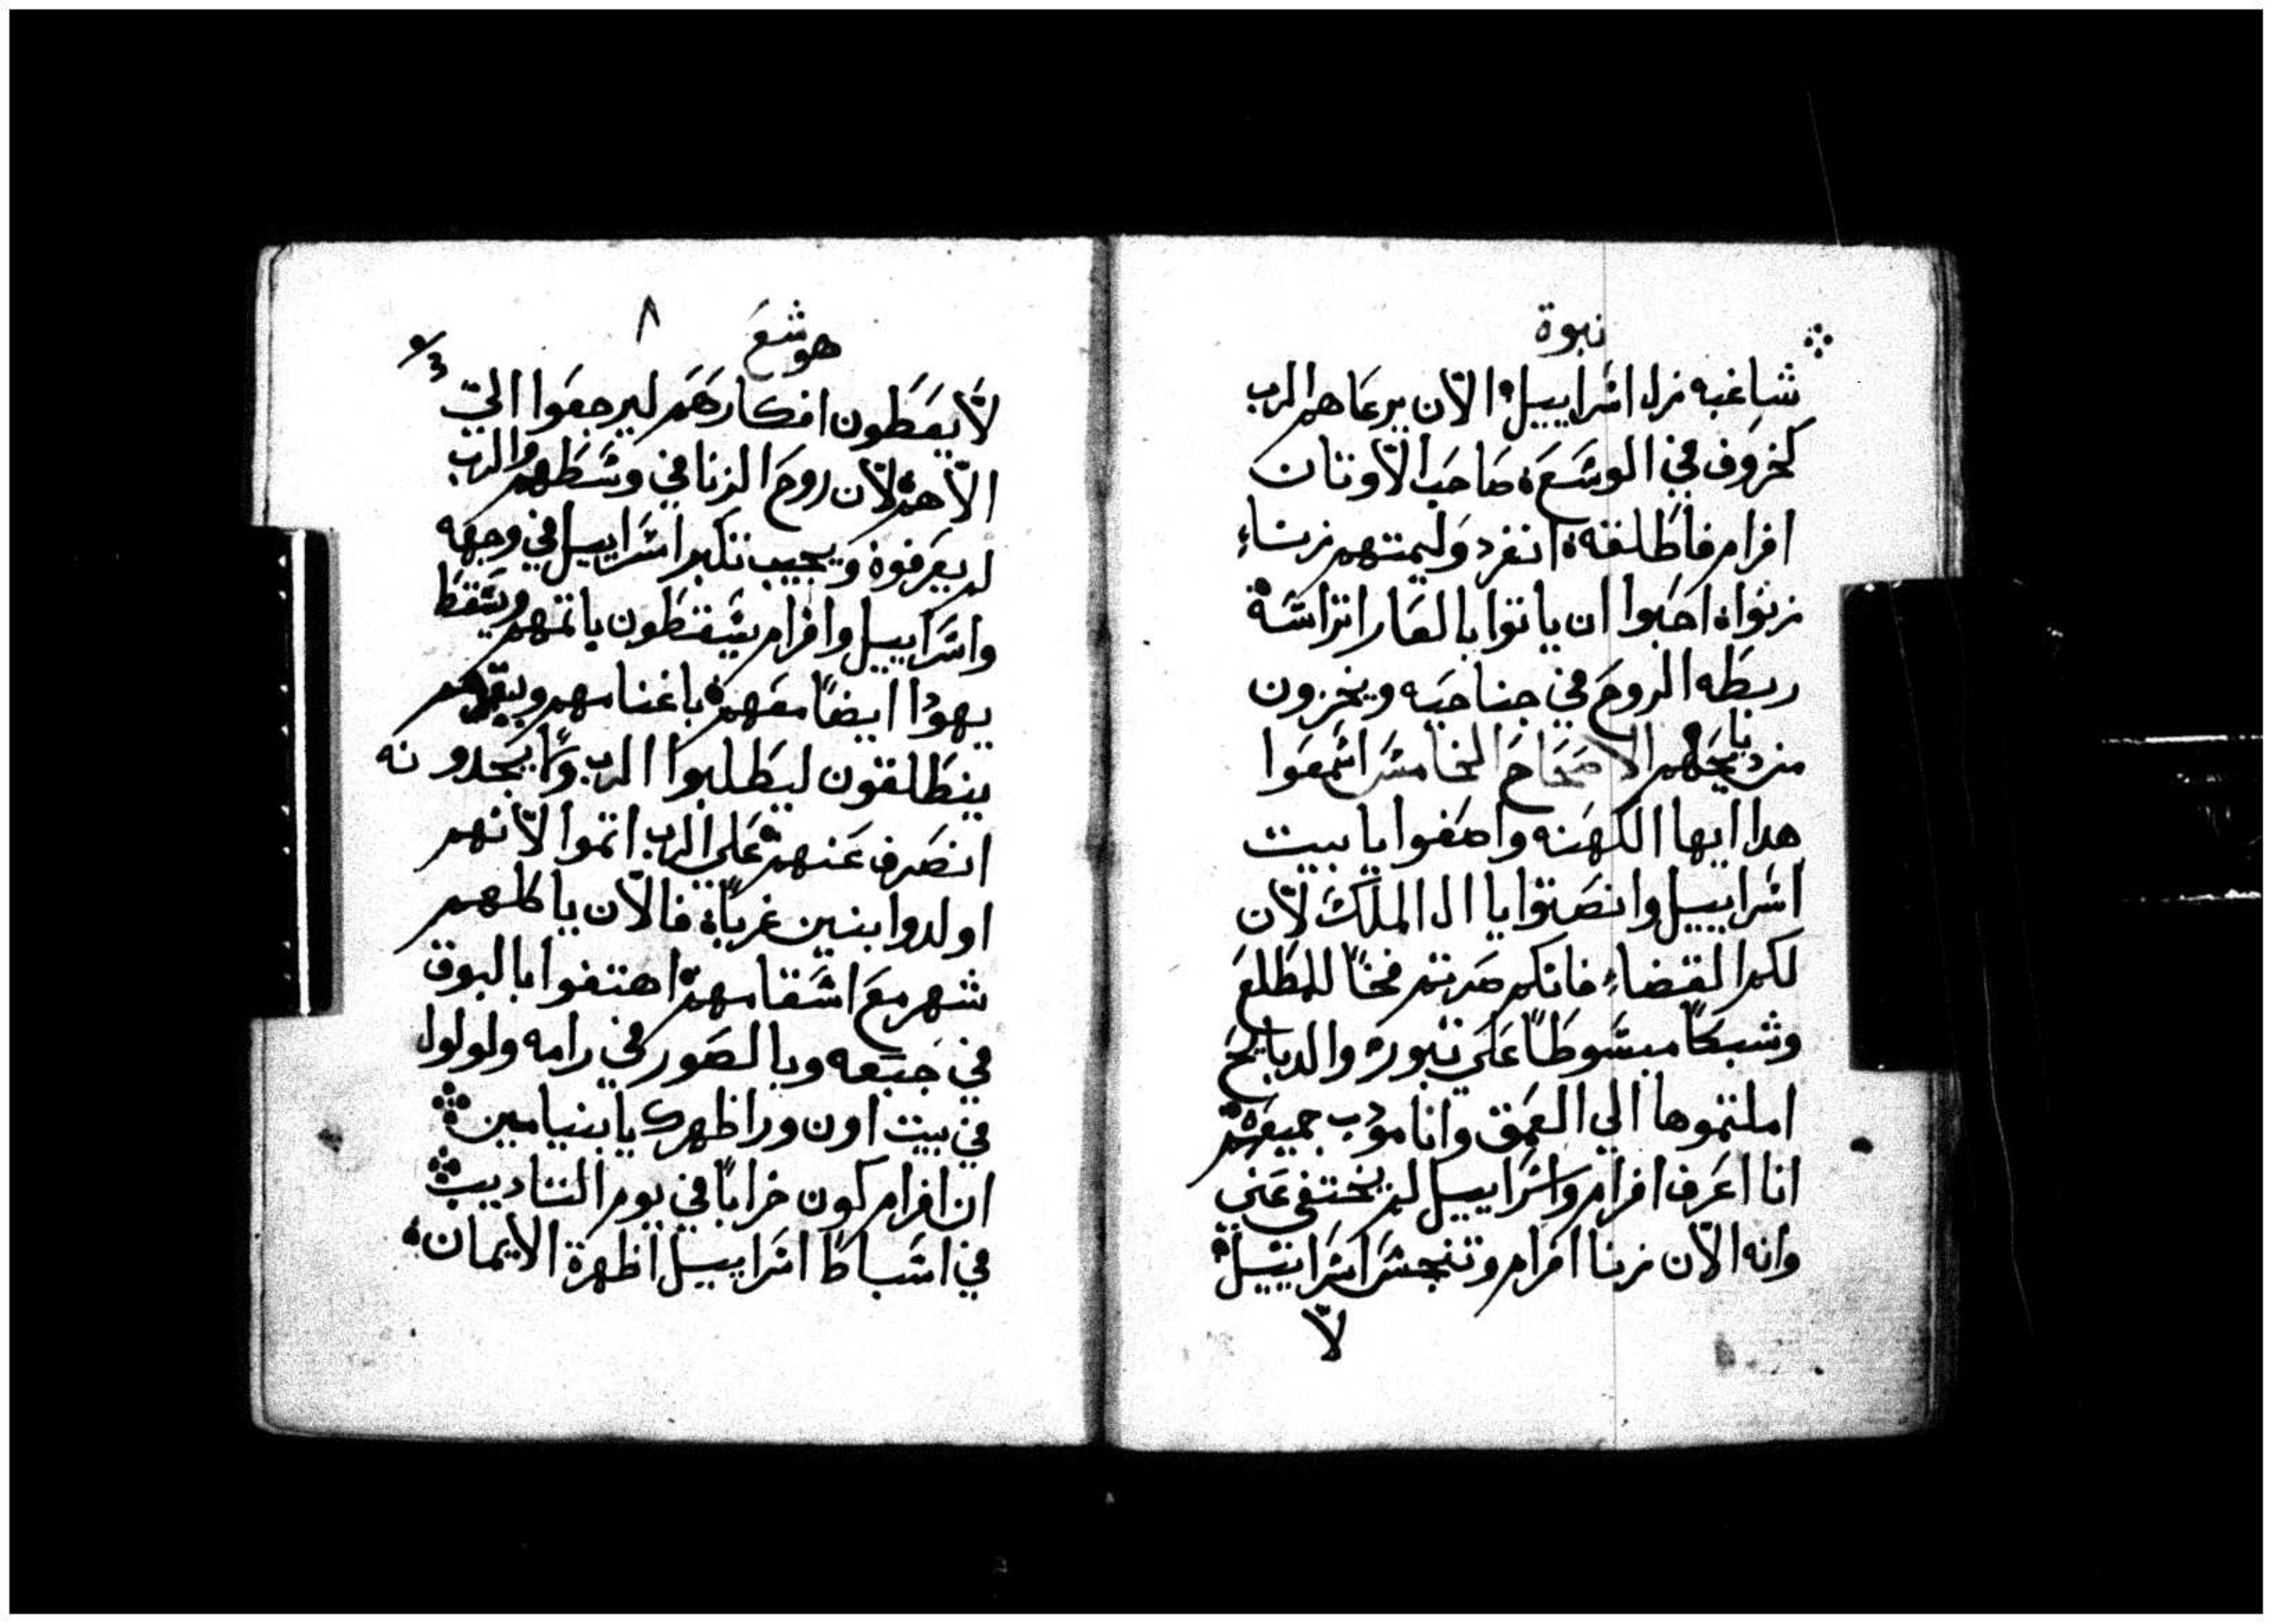 نبوة
شاغبه نزل اسراييل الآن يرعاهم الرب
كخروف في الوسع صاحب الآوتان
افرام فاطلقه انفرد وليمتهم زناء
زنوا احبوا ان ياتوا بالعار اتراسة
ربطه الروح في جناحيه ويخزون
من ديابحهم الاصحاح الخامس اسمعوا
هدا ايها الكهنه واصغوا يا بيت
اسراييل وانصتوا يا ال الملك لآن
لكم القضاء فانكم صرتم فخاً للطلع
وشبكاً مبسوطاً علي تبور والدبايح
املتموها الي العمق وانا مودب جميعهم
انا اعرف افرام واسراييل لم يختفي عني
وانه الآن زنا افرام وتنجس اسراييل
لآ
هوشع ٨
لآ يعطون افكارهم ليرجعوا الي
الآههم لآن روح الزنا في وسطهم والرب
لم يعرفوه ويجيب تكبر اسراييل في وجهه
واسراييل وافرام يسقطون باتمهم ويسقط
يهودا ايضاً معهم باغنامهم وبقرهم
ينطلقون ليطلبوا الرب ولا يجدونه
انصرف عنهم علي الرب اتموا لآنهم
اولدوا بنين غرباء فالآن ياكلهم
شهر مع اسقامهم اهتفوا بالبوق
في جبعه وبالصور في رامه ولولول
في بيت اون ورا ظهرك يا بنيامين
ان افرام كون خراباً في يوم التاديب
في اسباط اسراييل اظهرة الآيمان